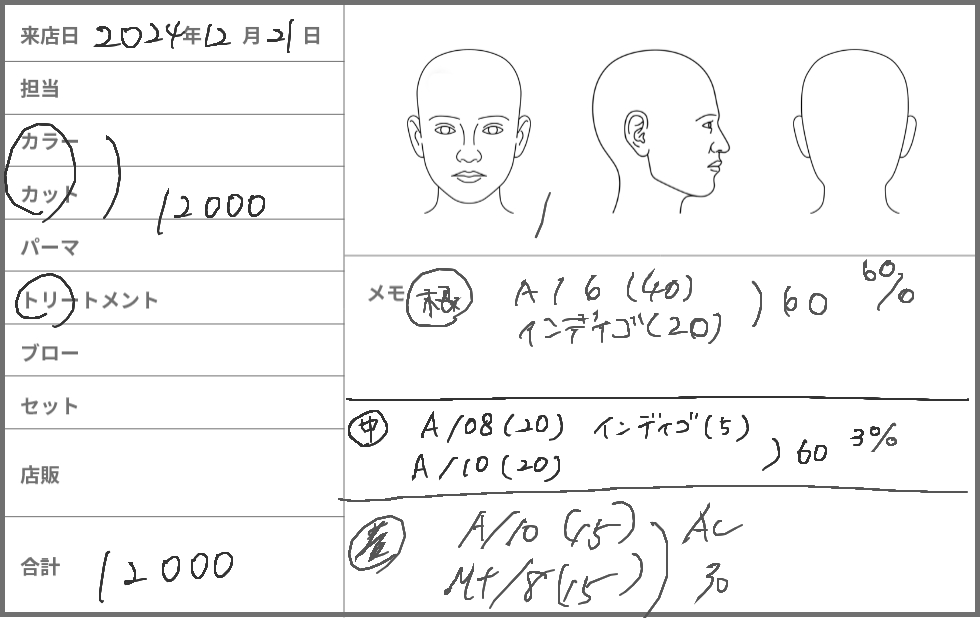 来店日 2024年12月21日
担当
カラー
カット
12000
パーマ
トリートメント
ブロー
セット
店販
合計 12000
メモ 根 A/6 (40) 60 6%
インディゴ(20)
中 A/08(20) インディゴ(5) 60 3%
A/10(20)
A/10 (15) AC
Mt/8(15) 30